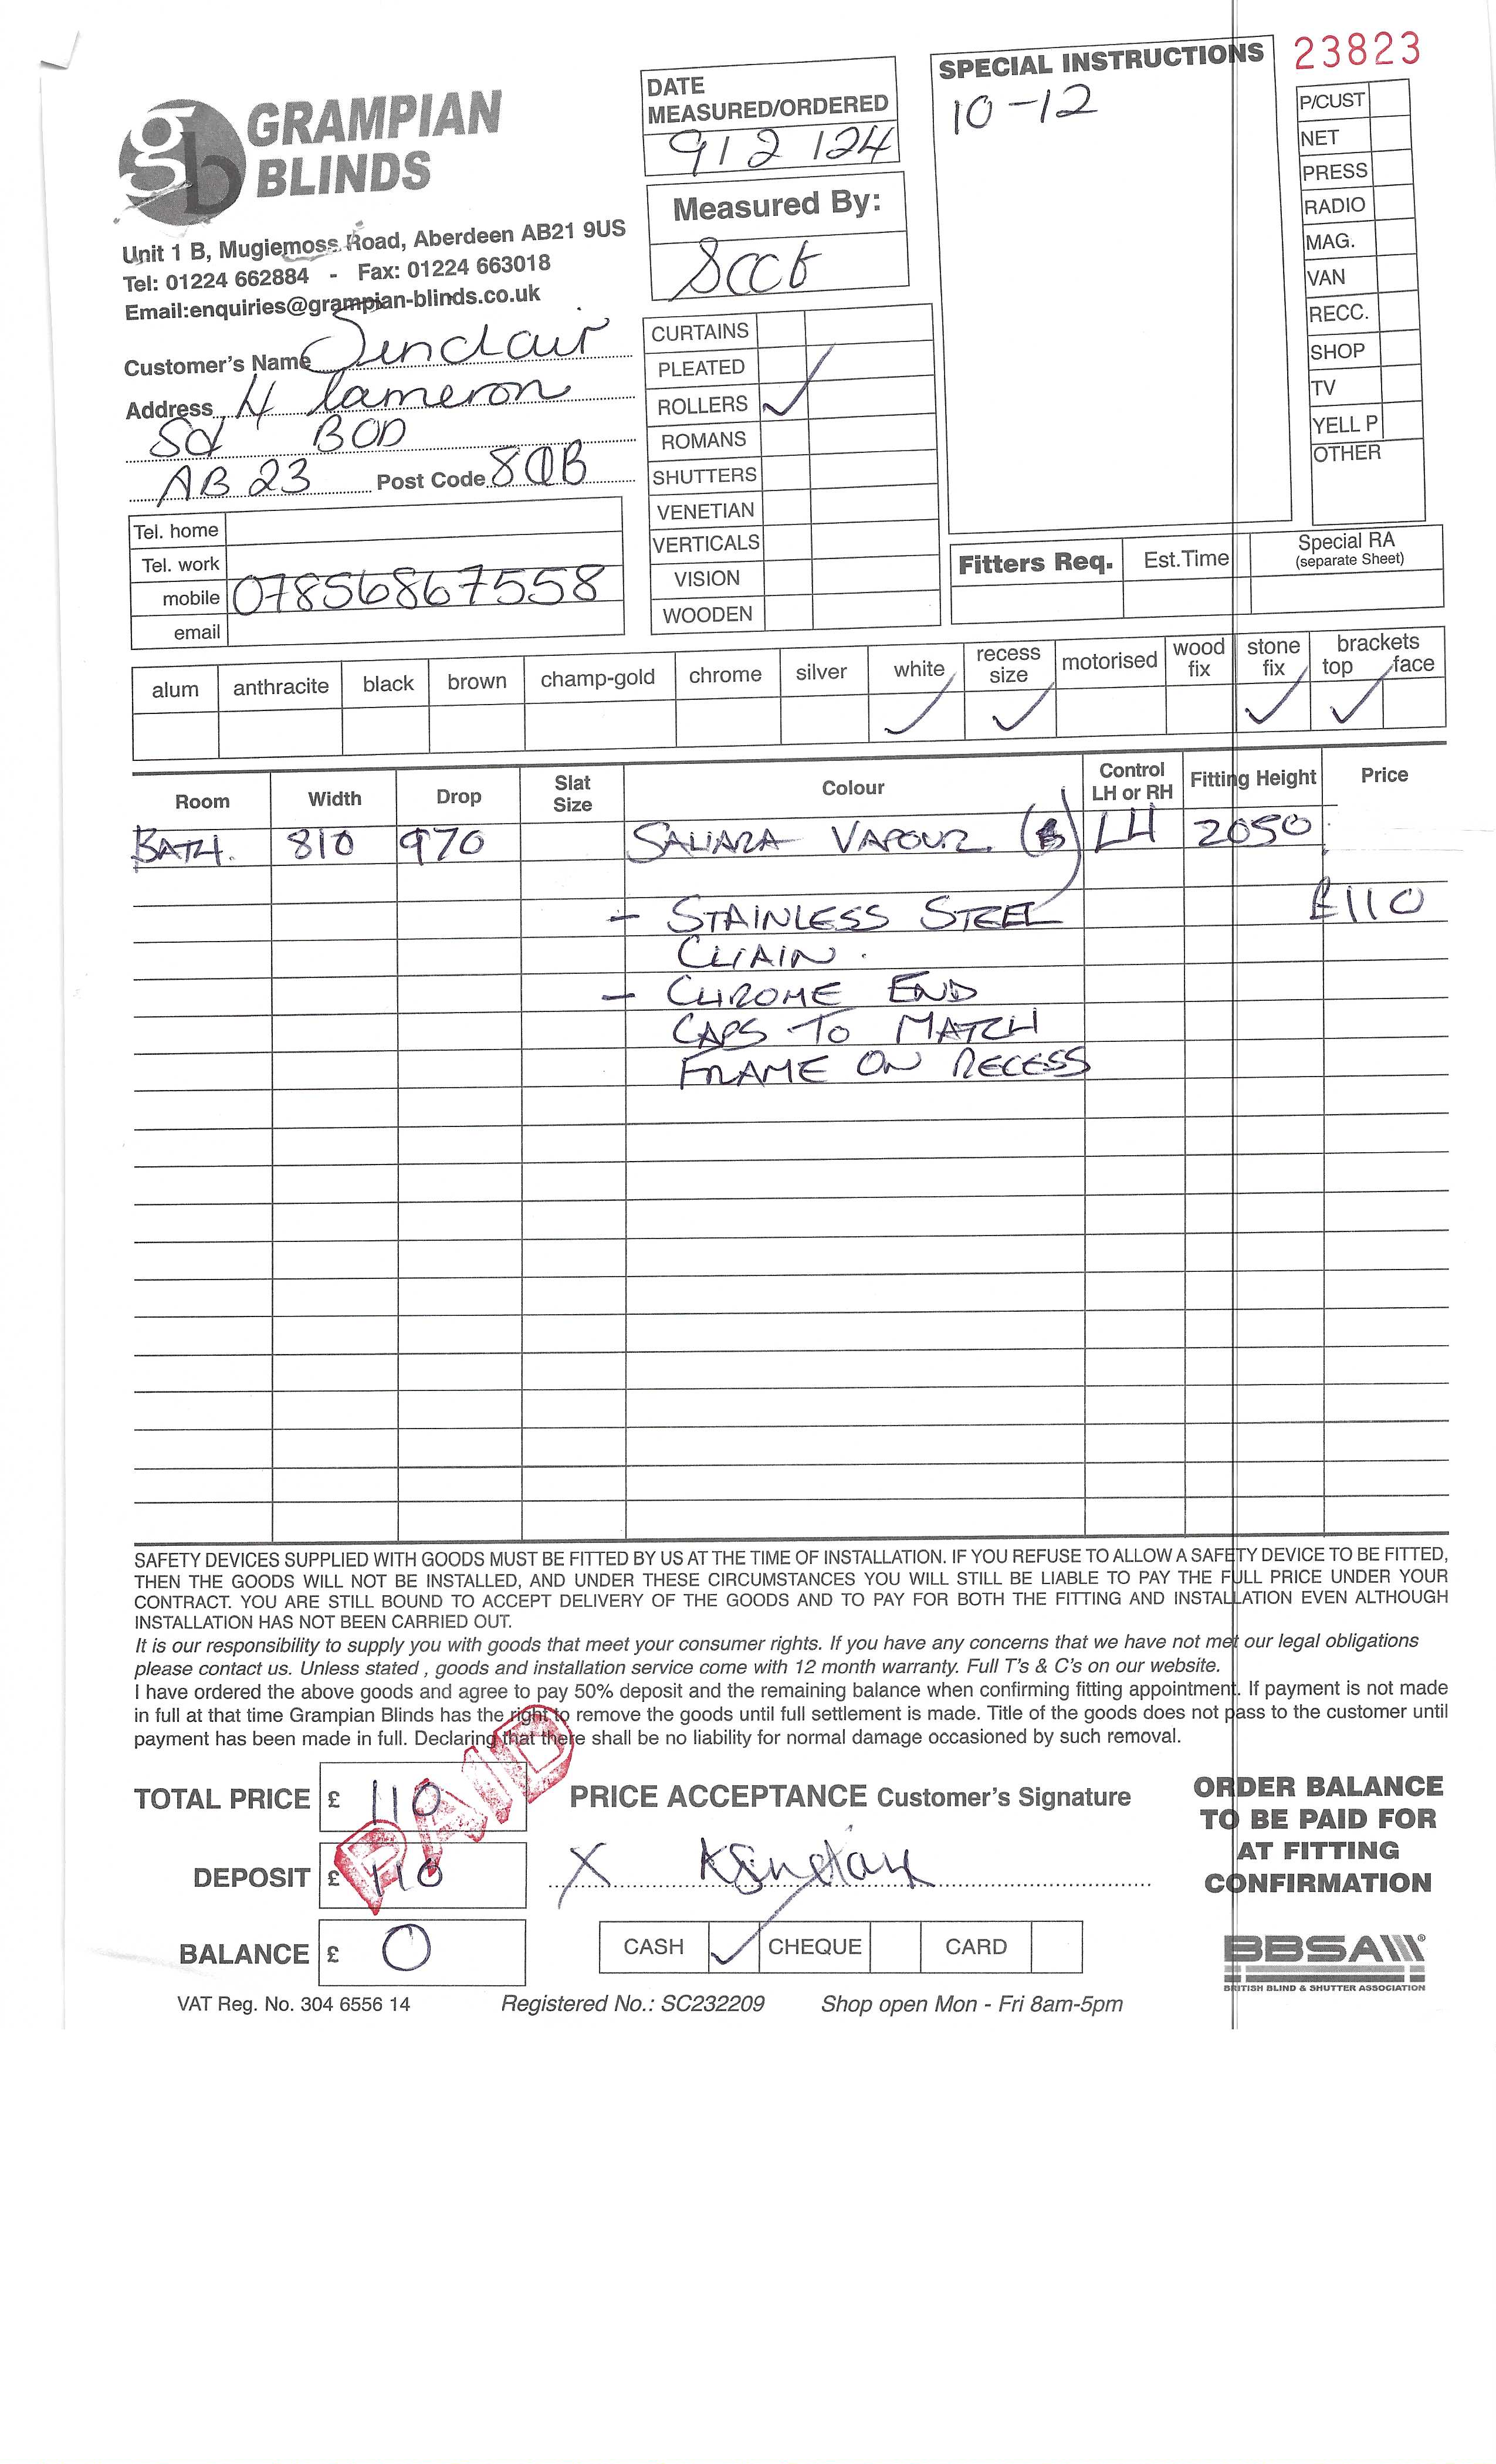 23823
GRAMPIAN
BLINDS
Unit 1 B, Mugiemoss Road, Aberdeen AB21 9US
Tel: 01224 662884 - Fax: 01224 663018
Email:enquiries@grampian-blinds.co.uk
Customer's Name Sinclair
Address 4 Cameron
BOD
AB23 Post Code 8QB
Tel. home
Tel. work
mobile 07856867558
email
DATE
MEASURED/ORDERED
9/2/24
Measured By:
CURTAINS
PLEATED
ROLLERS ✓
ROMANS
SHUTTERS
VENETIAN
VERTICALS
VISION
WOODEN
SPECIAL INSTRUCTIONS
10-12
P/CUST
NET
PRESS
RADIO
MAG.
VAN
RECC.
SHOP
TV
YELL P
OTHER
Fitters Req. Est.Time Special RA
(separate Sheet)
alum anthracite black brown champ-gold chrome silver white ✓ recess size ✓ motorised wood fix stone fix ✓ brackets top ✓ face
Room Width Drop Slat Size Colour Control LH or RH Fitting Height Price
BATH. 810 970 SAHARA VAPOUR. LH 2050
- STAINLESS STEEL £110
CHAIN.
- CHROME END
CAPS TO MATCH
FRAME ON RECESS
SAFETY DEVICES SUPPLIED WITH GOODS MUST BE FITTED BY US AT THE TIME OF INSTALLATION. IF YOU REFUSE TO ALLOW A SAFETY DEVICE TO BE FITTED,
THEN THE GOODS WILL NOT BE INSTALLED, AND UNDER THESE CIRCUMSTANCES YOU WILL STILL BE LIABLE TO PAY THE FULL PRICE UNDER YOUR
CONTRACT. YOU ARE STILL BOUND TO ACCEPT DELIVERY OF THE GOODS AND TO PAY FOR BOTH THE FITTING AND INSTALLATION EVEN ALTHOUGH
INSTALLATION HAS NOT BEEN CARRIED OUT.
It is our responsibility to supply you with goods that meet your consumer rights. If you have any concerns that we have not met our legal obligations
please contact us. Unless stated , goods and installation service come with 12 month warranty. Full T's & C's on our website.
I have ordered the above goods and agree to pay 50% deposit and the remaining balance when confirming fitting appointment. If payment is not made
in full at that time Grampian Blinds has the right to remove the goods until full settlement is made. Title of the goods does not pass to the customer until
payment has been made in full. Declaring that there shall be no liability for normal damage occasioned by such removal.
TOTAL PRICE £ 110
DEPOSIT £ 110
BALANCE £ 0
PAID
PRICE ACCEPTANCE Customer's Signature
X KSinclair
CASH ✓ CHEQUE CARD
ORDER BALANCE
TO BE PAID FOR
AT FITTING
CONFIRMATION
BBSA
BRITISH BLIND & SHUTTER ASSOCIATION
VAT Reg. No. 304 6556 14 Registered No.: SC232209 Shop open Mon - Fri 8am-5pm